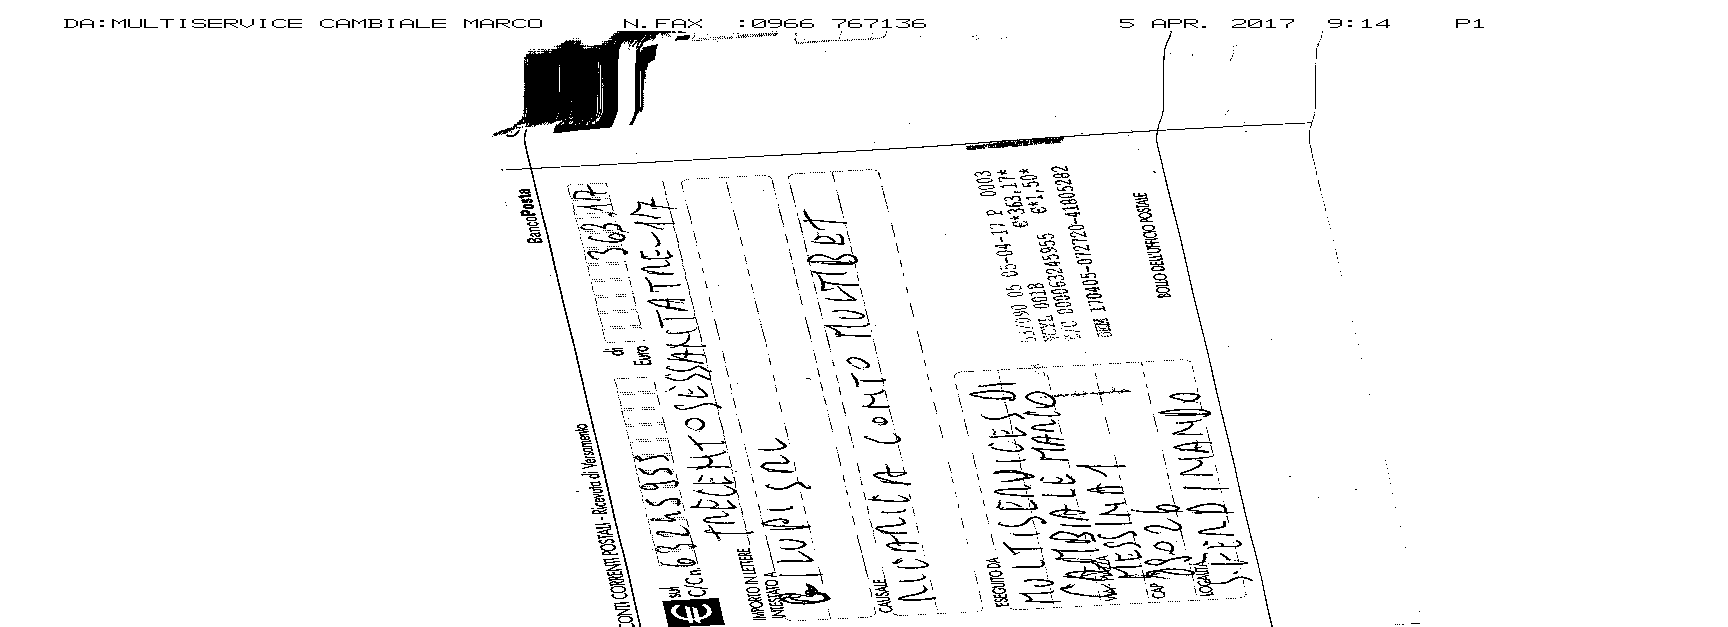 DA:MULTISERVICE CAMBIALE MARCO N.FAX :0966 767136 5 APR. 2017 9:14 P1
CONTI CORRENTI POSTALI - Ricevuta di Versamento
BancoPosta
€ sul C/C n. 63245955 di Euro 363,17
IMPORTO IN LETTERE TRECENTOSESSANTATRE-17
INTESTATO A
BILUPI SRL
CAUSALE
RICARICA CONTO MULTIBET
ESEGUITO DA
MULTISERVICES DI
CAMBIALE MARCO
MESSINA 1
CAP 89026
LOCALITÀ
S. FERDINANDO
05-04-17 P 0003
VCYL 0018 €*363,17*
C/C 000063245955 €*1,50*
170405-072720-41805282
BOLLO DELL'UFFICIO POSTALE